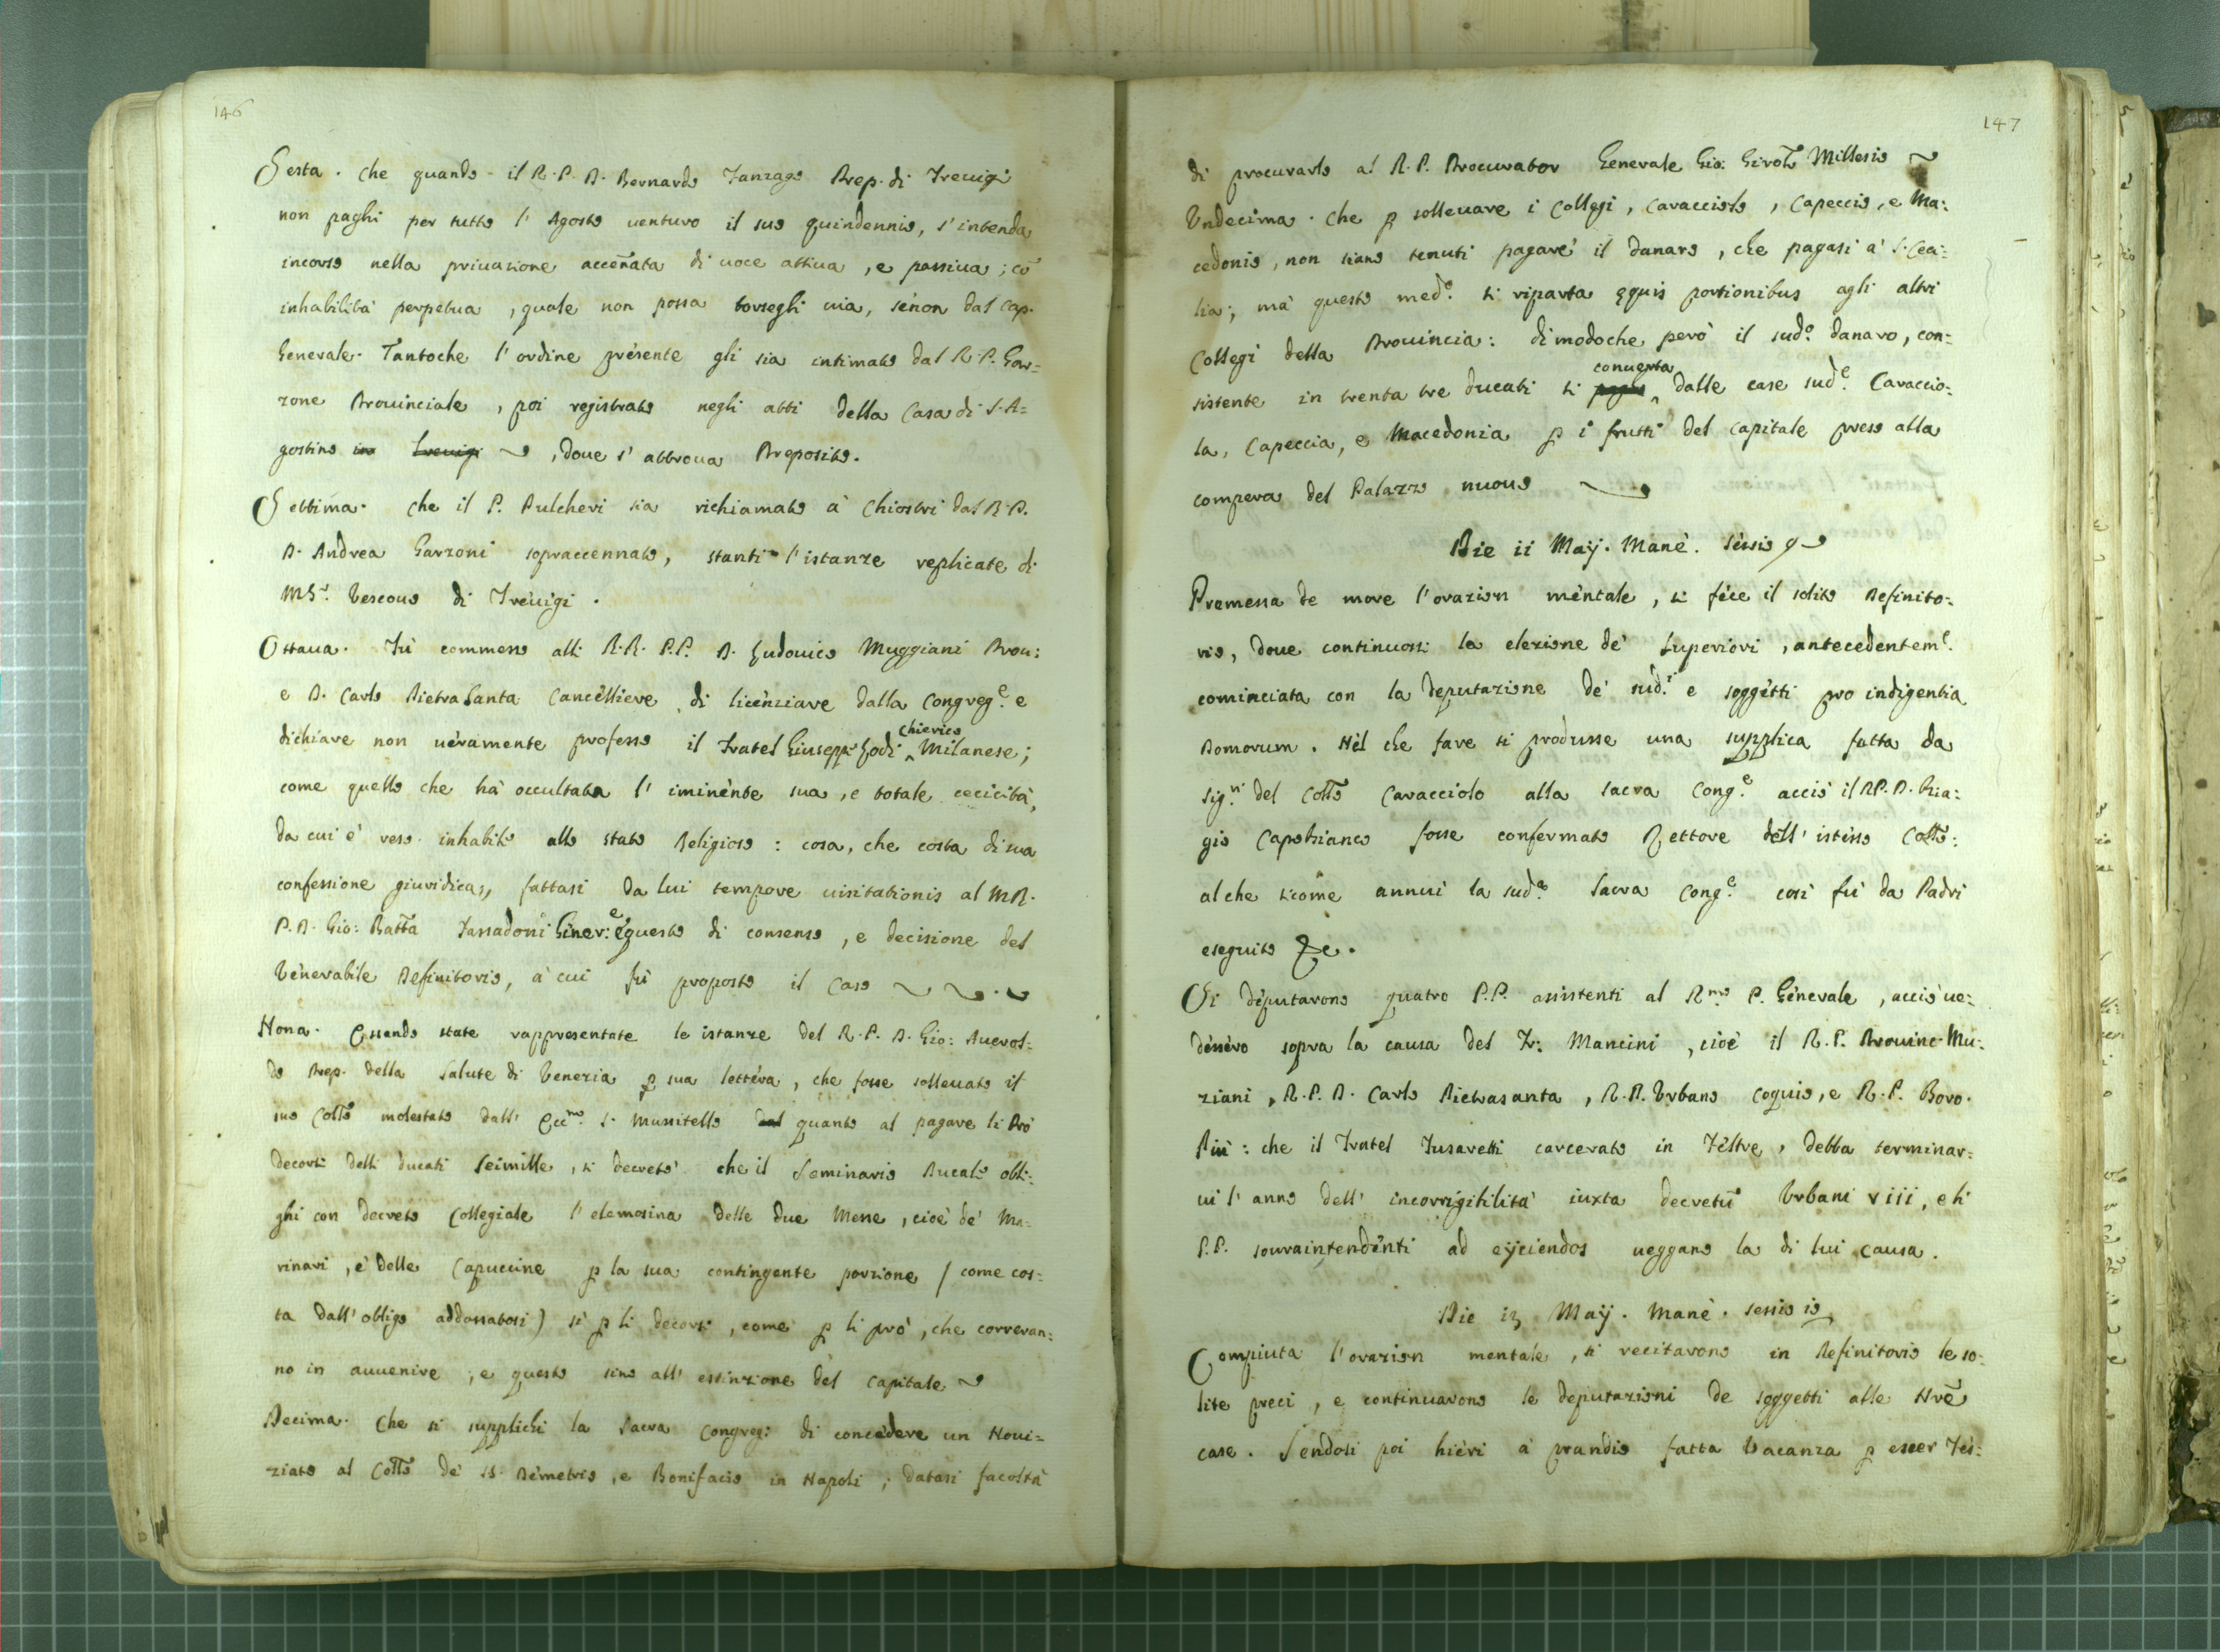 146
Sesta. Che quando il R. P. D. Bernardo Fanzago Prep. di Treuigi
non paghi per tutto l' Agosto uenturo il suo quindennio, s' intenda
incorso nella priuazione accen̄ata di uoce attiua, e passiua; cō
inhabilità perpetua, quale non possa torsegli uia, senon dal Cap.
Generale. Tantoche l' ordine presente gli sia intimato dal R. P. Gar=
zone Prouinciale, poi registrato negli atti della Casa di S. A=
gostino in Treuigi, doue s' attroua Preposito.
Settima. Che il P. Pulcheri sia richiamato à Chiostri dal R. P.
D. Andrea Garzoni sopraccennato, stanti l' istanze replicate di
Msr. Vescouo di Treuigi.
Ottaua. Fù commesso alli R.R. P.P. D. Ludouico Muggiani Prou:
e D. Carlo Pietra Santa Cancelliere di licenziare dalla Congreg.e e
dichiare non ueramente professo il Fratel Giuseppe Lodi chierico Milanese;
come quello che hà occultata l' iminente sua, e totale cecicità,
da cui è reso inhabile allo stato Religioso: cosa, che costa di sua
confessione giuridica, fattasi da lui tempore uisitationis al M R.
P. D. Gio: Batt̄a Fassadoni Gener:e e questo di consenso, e decisione del
Venerabile Definitorio, à cui fù proposto il Caso
Nona. Essendo state rappresentate le istanze del R. P. D. Gio: Auerol=
do Prep. della Salute di Venezia p sua lettera, che fosse solleuato il
suo Coll̄o molestato dall' Ecc.mo S. Mussitello dal quanto al pagare li Prò
decorsi delli ducati seimille, si decretò che il Seminario Ducale obli=
ghi con decreto Collegiale l' elemosina delle due Messe, cioè de' Ma=
rinari, e delle Capuccine p la sua contingente porzione (come cos=
ta dall' obligo addossatosi) sì p li decorsi, come p li prò, che correran=
no in auuenire; e questo sino all' estinzione del Capitale
Decima. Che si supplichi la Sacra Congreg: di concedere un Noui=
ziato al Coll̄o de' SS. Demetrio, e Bonifacio in Napoli; datasi facoltà
147
di procurarlo al R. P. Procurator Generale Gio: Girol̄o Millesio
Vndecima. Che p solleuare i Collegi, Caracciolo, Capeccio, e Ma:
cedonio, non siano tenuti pagare il danaro, che pagasi à S. Cea=
lia; mà questo med.o si riparta ęquis portionibus agli altri
Collegi della Prouincia: dimodoche però il sud.o danaro, con=
sistente in trenta tre ducati si conuerta dalle case sud.e Caraccio=
la, Capeccia, e Macedonia p i frutti del Capitale preso alla
compera del Palazzo nuouo
Die ii Maij. Manè. Sessio 9
Premessa de more l' orazion mentale, si fece il solito Definito=
rio, doue continuossi la elezione de' Superiori, antecedentem.e
cominciata con la deputazione de' sud.i e soggetti pro indigentia
Domorum. Nel che fare si produsse una supplica fatta da
Sig.ri del Coll̄o Caracciolo alla sacra Cong.e acciò il R P. D. Bia=
gio Capobianco fosse confermato Rettore dell' istesso Coll̄o:
al che sicome annuì la sud.a Sacra Cong.e così fù da Padri
eseguito &c.
Si deputarono quatro P.P. assistenti al R.mo P. Generale, acciò ue=
dessero sopra la causa del Fr: Mancini, cioè il R. P. Prouinc. Mu=
ziani, R. P. D. Carlo Pietrasanta, R. P. Vrbano Coquio, e R. P. Boro.
Più: che il Fratel Fusaretti carcerato in Feltre, debba terminar=
ui l' anno dell' incorrigibilità iuxta decretū Vrbani viii, e li
P.P. souraintendenti ad eijciendos ueggano la di lui causa.
Die 12 Maij. Manè. Sessio 10
Compiuta l' orazion mentale, si recitarono in Definitorio le so=
lite preci, e continuarono le deputazioni de soggetti alle Nr̄e
case. Sendosi poi hieri à prandio fatta Vacanza p esser Fes=